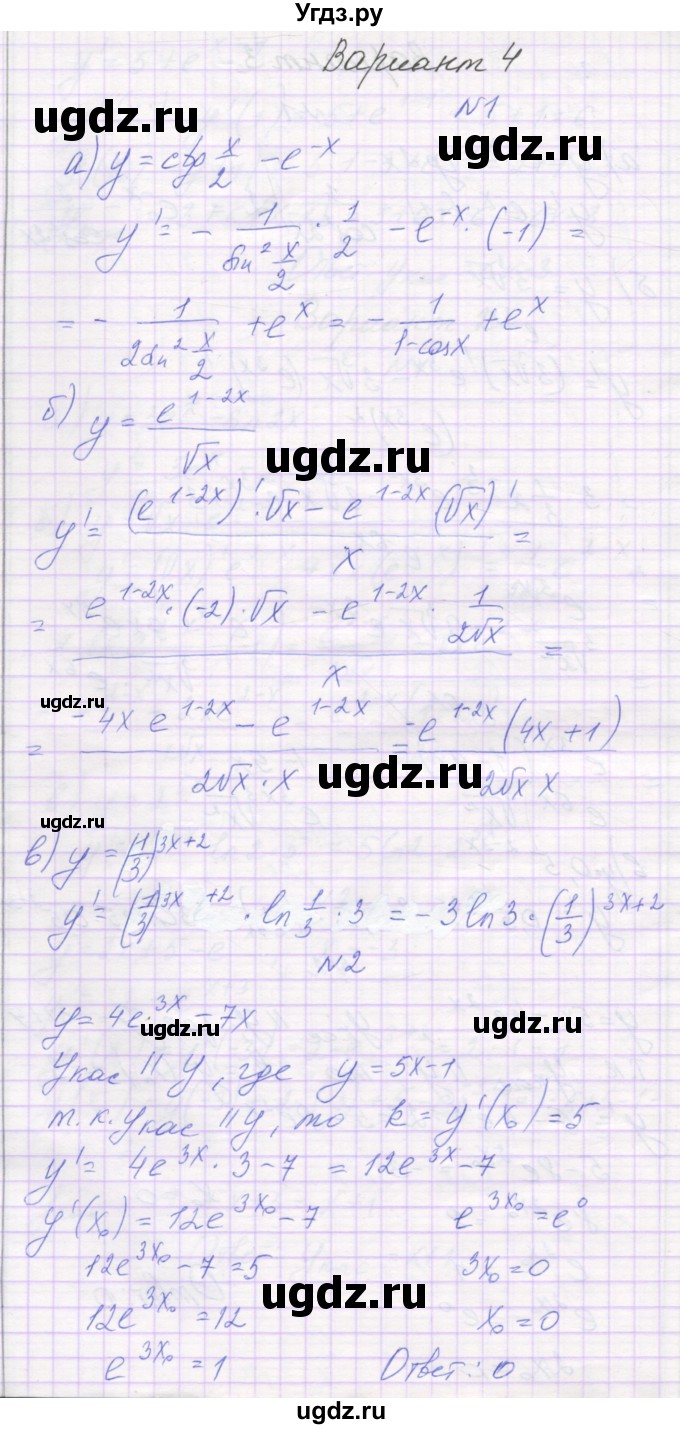 Угдз.ру
Вариант 4
ugdz.ru
N1
а) y = ctg x/2 - e^-x
y' = - 1/(sin² x/2) · 1/2 - e^-x · (-1) =
= - 1/(2sin² x/2) + e^x = - 1/(1-cosx) + e^x
ugdz.ru
ugdz.ru
б) y = e^(1-2x)/√x
ugdz.ru
y' = ((e^(1-2x))' · √x - e^(1-2x) (√x)')/x =
= (e^(1-2x) · (-2) · √x - e^(1-2x) · 1/(2√x))/x =
ugdz.ru
= (-4x e^(1-2x) - e^(1-2x))/(2√x · x) = (-e^(1-2x) (4x + 1))/(2√x x)
ugdz.ru
в) y = (1/3)^(3x+2)
y' = (1/3)^(3x+2) · ln 1/3 · 3 = -3ln3 · (1/3)^(3x+2)
N2
y = 4e^3x - 7x
ugdz.ru
ugdz.ru
yкас || y, где y = 5x-1
т.к. yкас || y, то k = y'(x₀) = 5
y' = 4e^3x · 3 - 7 = 12e^3x - 7
y'(x₀) = 12e^3x₀ - 7 e^3x₀ = e⁰
ugdz.ru
12e^3x₀ - 7 = 5 3x₀ = 0
ugdz.ru
12e^3x₀ = 12 x₀ = 0
e^3x₀ = 1 Ответ: 0
ugdz.ru